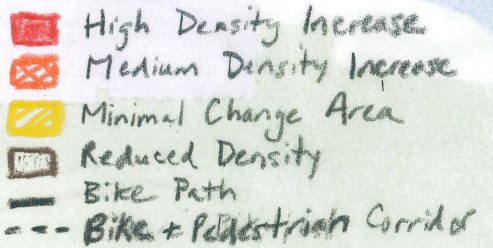 High Density Increase
Medium Density Increase
Minimal Change Area
Reduced Density
Bike Path
Bike + Pedestrian Corridor